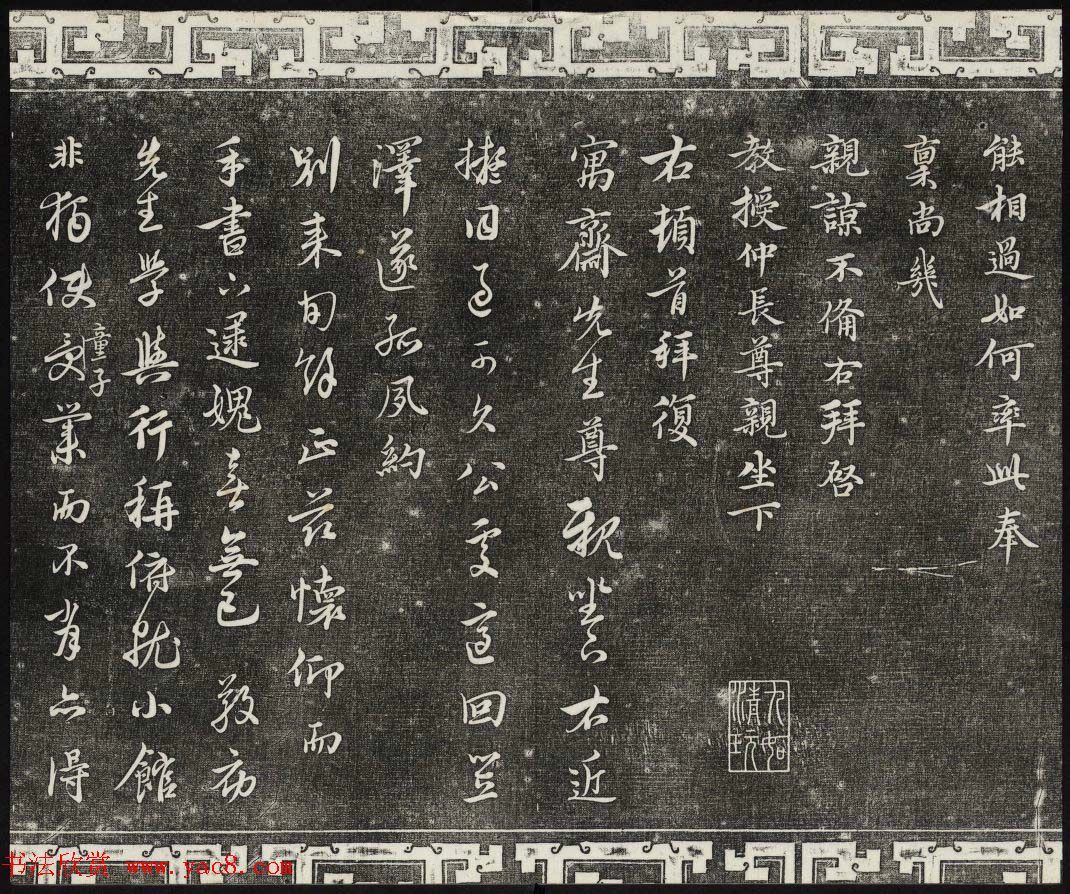 能相過如何率此奉
稟尚幾
親諒不備右拜啓
教授仲長尊親坐下
右頓首拜復
寓齋先生尊親坐下右近
過可久公處適回
澤遂孤夙約
別來旬餘正茲懷仰而
手書下逮媿喜無已
先生學與行稱俯就小館
非獨使童子受業而不肖亦得
九如清玩
书法欣赏 www.yac8.com